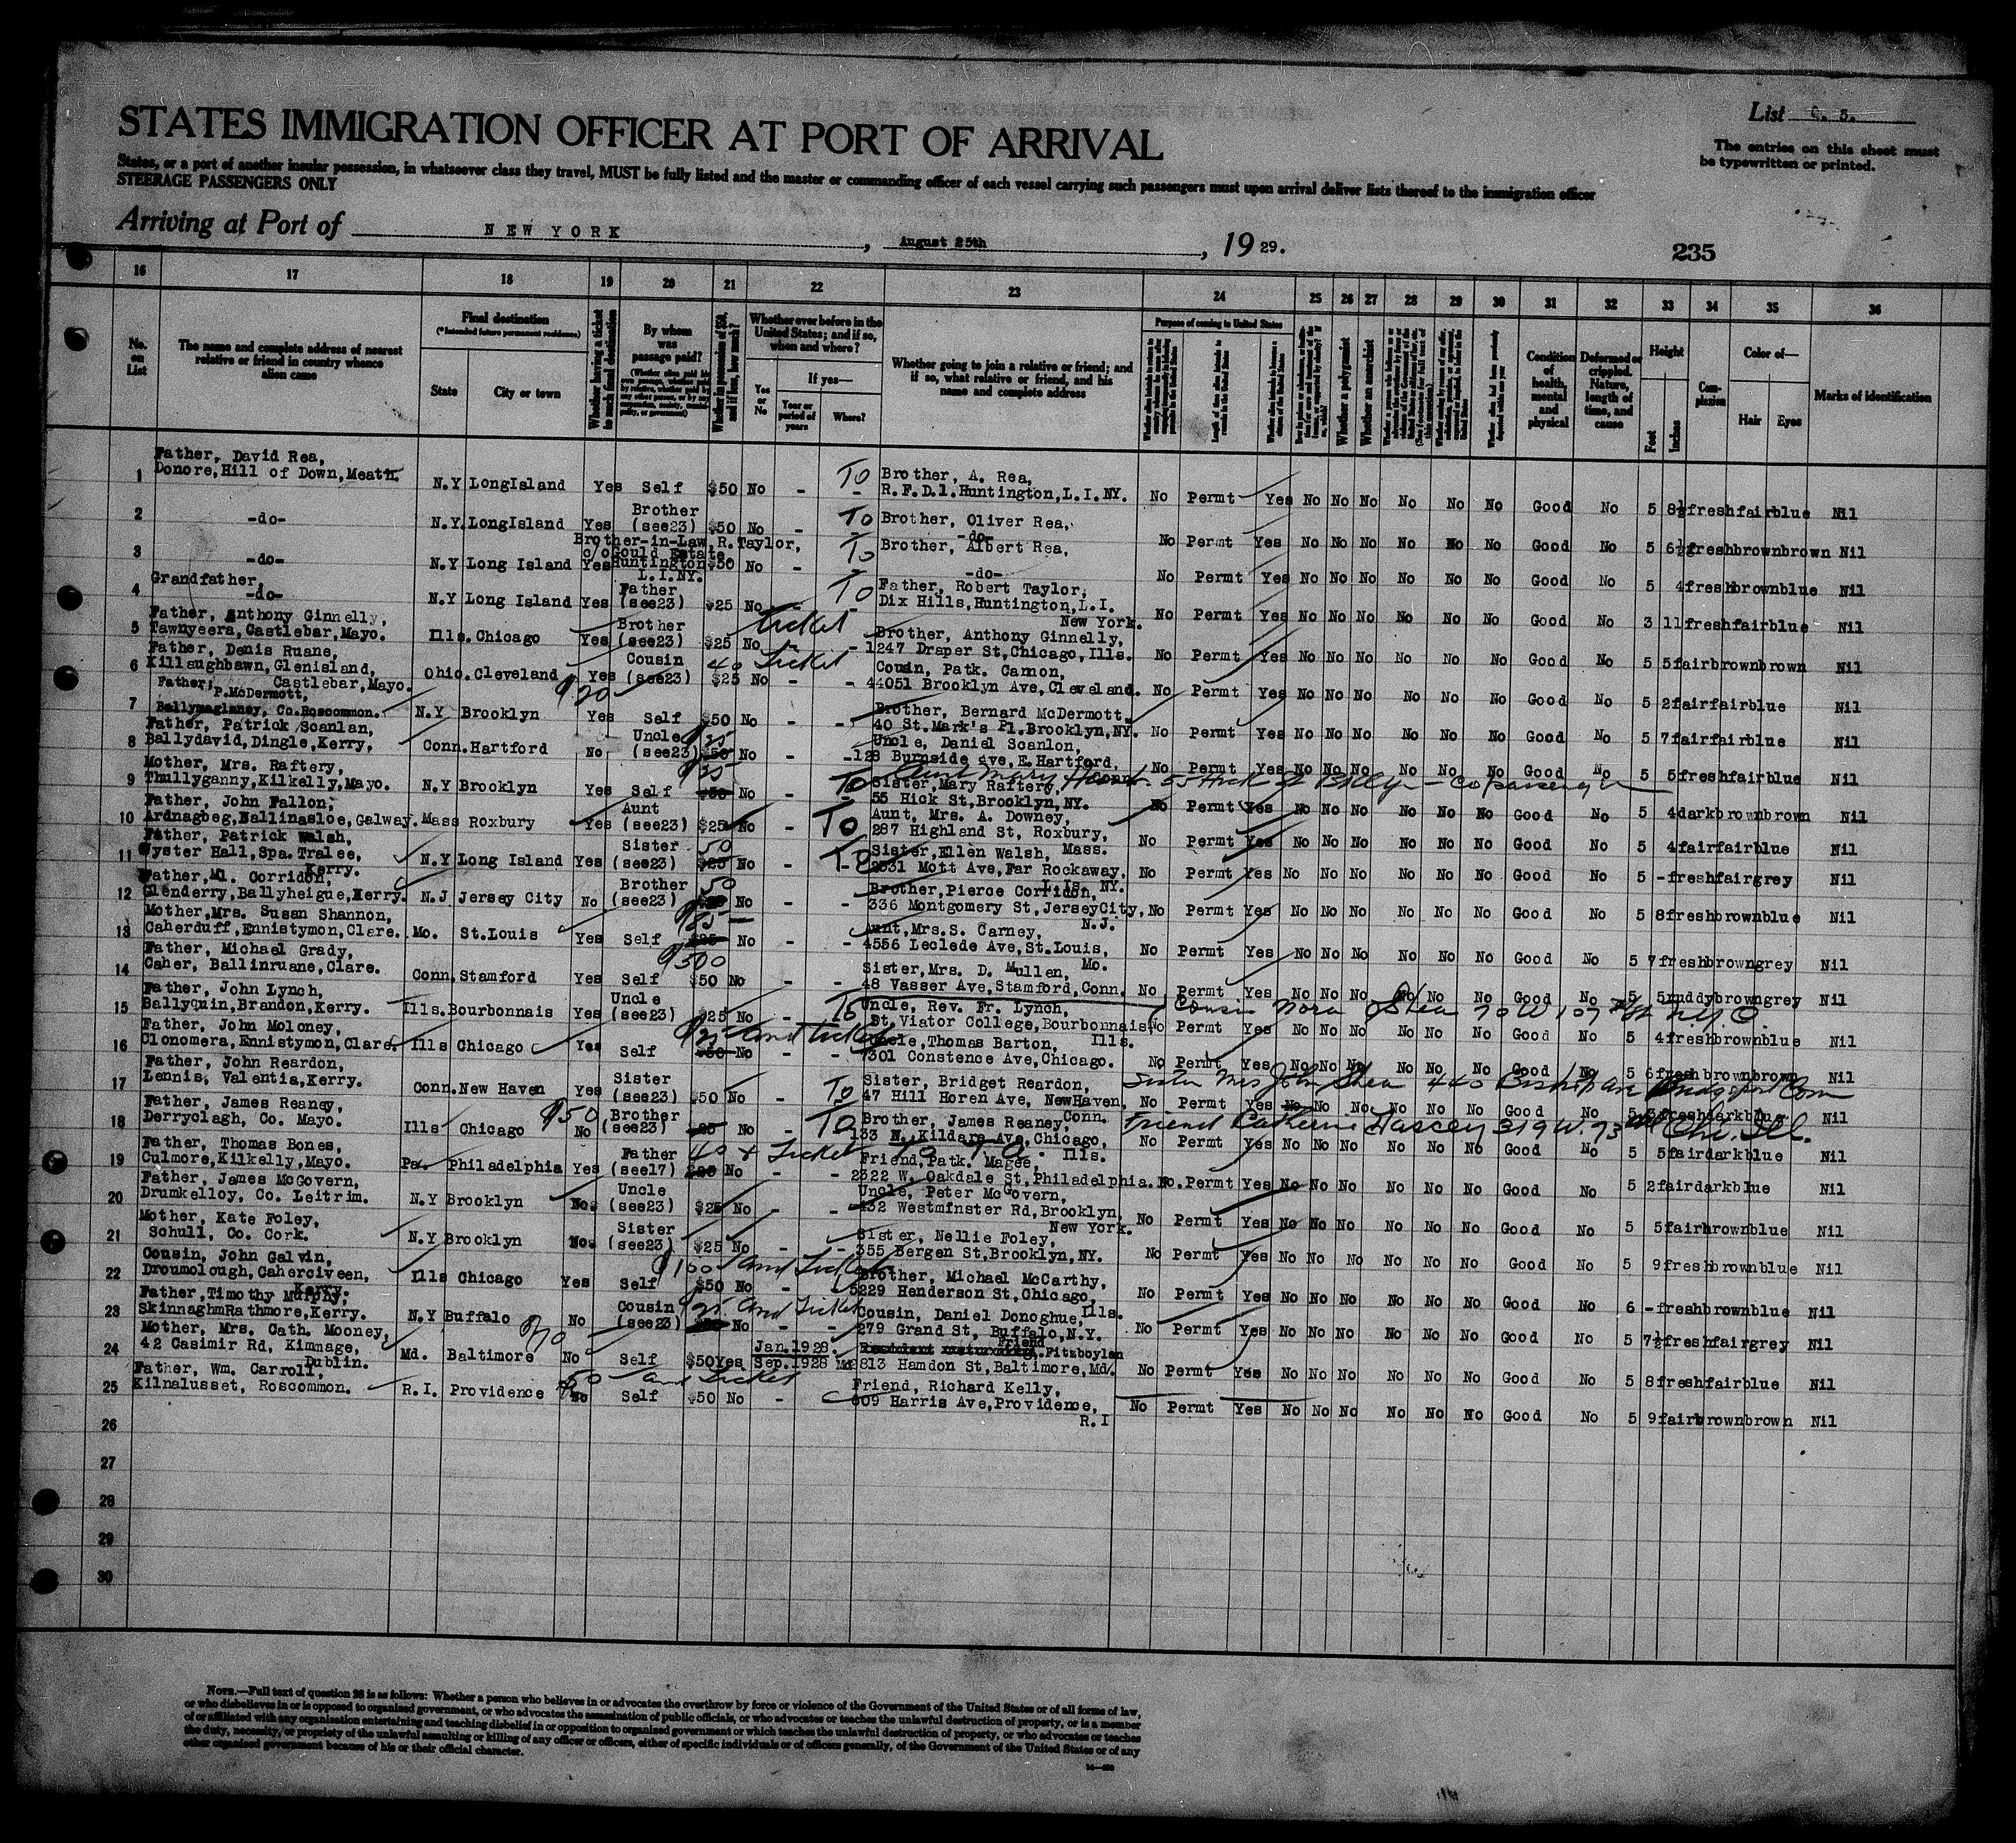 List C. 5.
STATES IMMIGRATION OFFICER AT PORT OF ARRIVAL
The entries on this sheet must
be typewritten or printed.
States, or a port of another insular possession, in whatsoever class they travel, MUST be fully listed and the master or commanding officer of each vessel carrying such passengers must upon arrival deliver lists thereof to the immigration officer
STEERAGE PASSENGERS ONLY
Arriving at Port of NEW YORK, August 25th, 1929.
235
16 17 18 19 20 21 22 23 24 25 26 27 28 29 30 31 32 33 34 35 36
No. on List
The name and complete address of nearest relative or friend in country whence alien came
Final destination
(*Intended future permanent residence)
State City or town
Whether having a ticket to such final destination
By whom was passage paid?
Whether in possession of $50, and if less, how much?
Whether ever before in the United States; and if so, when and where?
Yes or No
If yes—
Year or period of years
Where?
Whether going to join a relative or friend; and if so, what relative or friend, and his name and complete address
Purpose of coming to United States
Whether a polygamist
Whether an anarchist
Condition of health, mental and physical
Deformed or crippled. Nature, length of time, and cause
Height
Feet Inches
Complexion
Color of—
Hair Eyes
Marks of identification
Father, David Rea,
1 Donore, Hill of Down, Meath. N.Y LongIsland Yes Self $50 No - TO - Brother, A. Rea,
R.F.D.1.Huntington,L.I.NY. No Permt Yes No No No No No No Good No 5 8½ fresh fair blue Nil
2 -do- N.Y. LongIsland Yes Brother (see23) $50 No - To Brother, Oliver Rea,
-do- No Permt Yes No No No No No No Good No 5 6½ fresh brown brown Nil
3 -do- N.Y Long Island Yes Brother-in-Law R.Taylor,
c/o Gould Estate
Huntington
L.I.NY. $50 No - To Brother, Albert Rea,
-do- No Permt Yes No No No No No No Good No 5 4 fresh brown blue Nil
Grandfather,
4 -do- N.Y Long Island Yes Father (see23) $25 No - To Father, Robert Taylor,
Dix Hills,Huntington,L.I.
New York. No Permt Yes No No No No No No Good No 3 11 fresh fair blue Nil
Father, Anthony Ginnelly,
5 Tawnyeera, Castlebar, Mayo. Ills. Chicago Yes Brother (see23) $25 No ticket - Brother, Anthony Ginnelly,
1247 Draper St,Chicago, Ills. No Permt Yes No No No No No No Good No 5 5 fair brown brown Nil
Father, Denis Ruane,
6 Killaughbawn, Glenisland,
Castlebar, Mayo. Ohio. Cleveland Yes Cousin (see23) $25 No 40 ticket - - Cousin, Patk. Camon,
44051 Brooklyn Ave, Cleveland. No Permt Yes No No No No No No Good No 5 2 fair fair blue Nil
Father,
P.McDermott,
7 Ballymaglaney, Co.Roscommon. N.Y Brooklyn Yes $20 Self $50 No - - Brother, Bernard McDermott
40 St.Mark's Pl.Brooklyn,NY. No Permt Yes No No No No No No Good No 5 7 fair fair blue Nil
Father, Patrick Scanlan,
8 Ballydavid, Dingle, Kerry, Conn. Hartford No Uncle (see23) $50 $25 No - - Uncle, Daniel Scanlon,
128 Burnside ave,E.Hartford,
Conn. No Permt Yes No No No No No No Good No 5 5 fresh fair blue Nil
Mother, Mrs. Raftery,
9 Thullyganny, Kilkelly, Mayo. N.Y Brooklyn Yes Self $50 $25 No - To Sister, Mary Raftery,
55 Hick St,Brooklyn,NY. No Permt Yes No No No No No No Good No 5 4 dark brown brown Nil
Father, John Fallon,
10 Ardnagbeg, Ballinasloe, Galway. Mass Roxbury Yes Aunt (see23) $25 No - To Aunt, Mrs. A. Downey,
287 Highland St, Roxbury,
Mass. No Permt Yes No No No No No No Good No 5 4 fair fair blue Nil
Father, Patrick Walsh,
11 Oyster Hall, Spa. Tralee,
Kerry. N.Y Long Island Yes Sister (see23) $25 50 No - To Sister, Ellen Walsh,
2531 Mott Ave,Far Rockaway,
L.Is. NY. No Permt Yes No No No No No No Good No 5 - fresh fair grey Nil
Father, Ml. Corridon,
12 Glenderry, Ballyheigue, Kerry. N.J Jersey City No Brother (see23) 50 No - - Brother, Pierce Corridon,
336 Montgomery St,JerseyCity,
N.J. No Permt Yes No No No No No No Good No 5 8 fresh brown blue Nil
Mother, Mrs. Susan Shannon,
13 Caherduff, Ennistymon, Clare. Mo. St.Louis Yes Self $25 $85 No - - Aunt,Mrs.S. Carney,
4556 Leclede Ave,St.Louis,
Mo. No Permt Yes No No No No No No Good No 5 7 fresh brown grey Nil
Father, Michael Grady,
14 Caher, Ballinruane, Clare. Conn. Stamford Yes Self $50 $500 No - - Sister,Mrs. D. Mullen,
48 Vasser Ave,Stamford,Conn. No Permt Yes No No No No No No Good No 5 5 ruddy brown grey Nil
Father, John Lynch,
15 Ballyquin, Brandon, Kerry. Ills. Bourbonnais Yes Uncle (see23) $25 No - To Uncle, Rev. Fr. Lynch,
St, Viator College,Bourbonnais,
Ills. Cousin Nora O'Shea 70 W 107 St N.Y.C. No Permt Yes No No No No No No Good No 5 4 fresh brown blue Nil
Father, John Moloney,
16 Clonomera, Ennistymon, Clare. Ills Chicago Yes Self $50 $25 and ticket No - - Uncle,Thomas Barton,
7301 Constence Ave,Chicago. No Permt Yes No No No No No No Good No 5 6 fresh brown brown Nil
Father, John Reardon,
17 Lennis, Valentia, Kerry. Conn. New Haven Yes Sister (see23) $50 No - To Sister, Bridget Reardon,
47 Hill Horen Ave, NewHaven,
Conn. Sister Mrs John Shea 440 Conn No Permt Yes No No No No No No Good No 5 fresh dark blue Nil
Father, James Reaney,
18 Derryolagh, Co. Mayo. Ills Chicago No $50 Brother (see23) 25 No - To Brother, James Reaney,
133 N. Kildare Ave,Chicago,
Ills. Friend Catherine 319 W. 73 Chi. Ill. No Permt Yes No No No No No No Good No 5 5 fair dark blue Nil
Father, Thomas Bones,
19 Culmore, Kilkelly, Mayo. Pa. Philadelphia Yes Father (see17) 40 + Ticket to No - - Friend,Patk. Magee,
2322 W. Oakdale St,Philadelphia. No. Permt Yes No No No No No No Good No 5 2 fair dark blue Nil
Father, James McGovern,
20 Drumkelloy, Co. Leitrim. N.Y Brooklyn No Uncle (see23) $25 No - - Uncle, Peter McGovern,
432 Westminster Rd,Brooklyn,
New York. No Permt Yes No No No No No No Good No 5 5 fair brown blue Nil
Mother, Kate Foley,
21 Schull, Co. Cork. N.Y Brooklyn No Sister (see23) $25 No - - Sister, Nellie Foley,
355 Bergen St,Brooklyn,NY. No Permt Yes No No No No No No Good No 5 9 fresh brown blue Nil
Cousin, John Galvin,
22 Droumolough, Caherciveen,
Kerry. Ills Chicago Yes Self $50 $100 and ticket No - - Brother, Michael McCarthy,
5229 Henderson St,Chicago,
Ills. No Permt Yes No No No No No No Good No 6 - fresh brown blue Nil
Father, Timothy Murphy,
23 SkinnaghmRathmore, Kerry. N.Y Buffalo No Cousin (see23) $25 and ticket No - - Cousin, Daniel Donoghue,
279 Grand St, Buffalo,N.Y. No Permt Yes No No No No No No Good No 5 7½ fresh fair grey Nil
Mother, Mrs. Cath. Mooney,
24 42 Casimir Rd, Kimmage,
Dublin. Md. Baltimore No $70 Self $50 Yes Jan.1928.
Sep.1928 Md Friend
.Fitzboylan
2813 Hamdon St,Baltimore,Md. No Permt Yes No No No No No No Good No 5 8 fresh fair blue Nil
Father, Wm. Carroll,
25 Kilnalusset, Roscommon. R.I. Providence No 50 and ticket Self $50 No - Friend, Richard Kelly,
609 Harris Ave,Providence,
R.I No Permt Yes No No No No No No Good No 5 9 fair brown brown Nil
26
27
28
29
30
NOTE.—Full text of question 28 is as follows: Whether a person who believes in or advocates the overthrow by force or violence of the Government of the United States or of all forms of law,
or who disbelieves in or is opposed to organized government, or who advocates the assassination of public officials, or who advocates or teaches the unlawful destruction of property, or is a member
of or affiliated with any organization entertaining and teaching disbelief in or opposition to organized government or which teaches the unlawful destruction of property, or who advocates or teaches
the duty, necessity, or propriety of the unlawful assaulting or killing of any officer or officers, either of specific individuals or of officers generally, of the Government of the United States or of any
other organized government because of his or their official character.